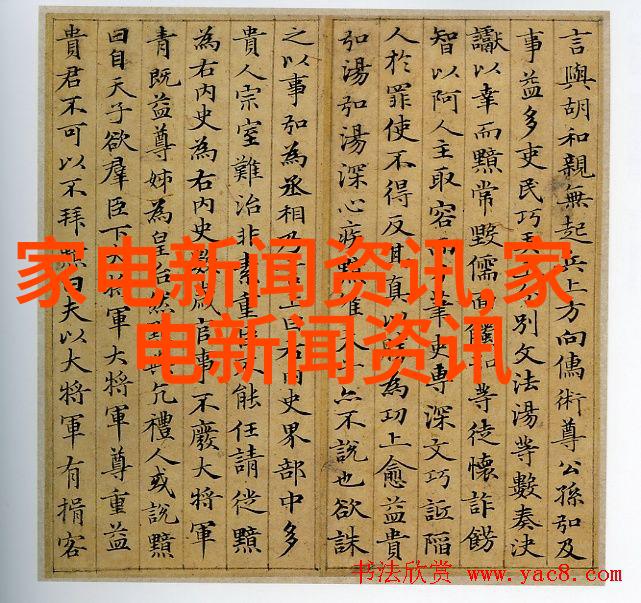 言與胡和親無起兵上方向儒術尊公孫弘及
事益多吏民巧別文法湯等數奏決
讞以幸而黯常毀儒面等徒懷詐飾
智以阿人主取容而筆吏專深文巧詆陷
人於罪使不得反其真以為功上愈益貴
弘湯弘湯深心疾黯不說也欲誅
之以事弘為丞相乃言上曰右內史界部中多
貴人宗室難治非素重能任請徙黯
為右內史為右內史歲官事不廢大將軍
青既益尊姊為皇后然禮人或說黯
曰自天子欲羣臣下大將軍大將軍尊重益
貴君不可以不拜黯曰夫以大將軍有揖客
家电新闻资讯,家
电新闻资讯
书法欣赏 www.yac8.com